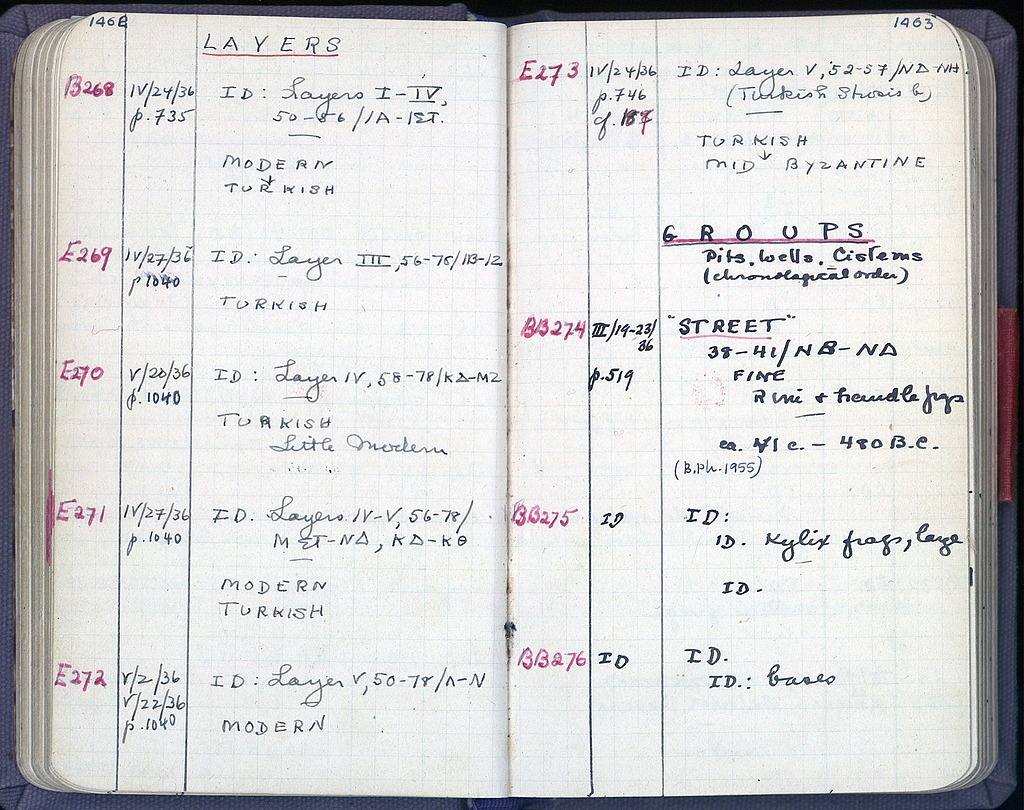 1462
LAYERS
B268 IV/24/36 ID: Layers I-IV,
p.735 50-56/ΙΑ-ΙΣΤ.
MODERN
↓
TURKISH
E269 IV/27/36 ID: Layer III, 56-75/
p.1040
TURKISH
E270 V/20/36 ID: Layer IV, 58-78/ΚΔ-ΜΖ
p.1040
TURKISH
Little Modern
E271 IV/27/36 ID. Layers IV-V, 56-78/
p.1040 ΜΣΤ-ΝΔ, ΚΔ-ΚΘ
MODERN
TURKISH
E272 V/2/36 ID: Layer V, 50-78/Λ-Ν
V/22/36
p.1040 MODERN
1463
E273 IV/24/36 ID: Layer V, 52-57/ΝΔ-ΝΗ.
p.746 (Turkish
cf.
TURKISH
↓
MID BYZANTINE
GROUPS
Pits, Wells, Cisterns
(chronological order)
BB274 III/19-23/36 "STREET"
38-41/ΝΒ-ΝΔ
p.519 FINE
Rim + handle frgs
ca. VI c. - 480 B.C.
(B.Ph. 1955)
BB275 ID ID:
ID. Kylix frags, large
ID.
BB276 ID ID.
ID.: bases